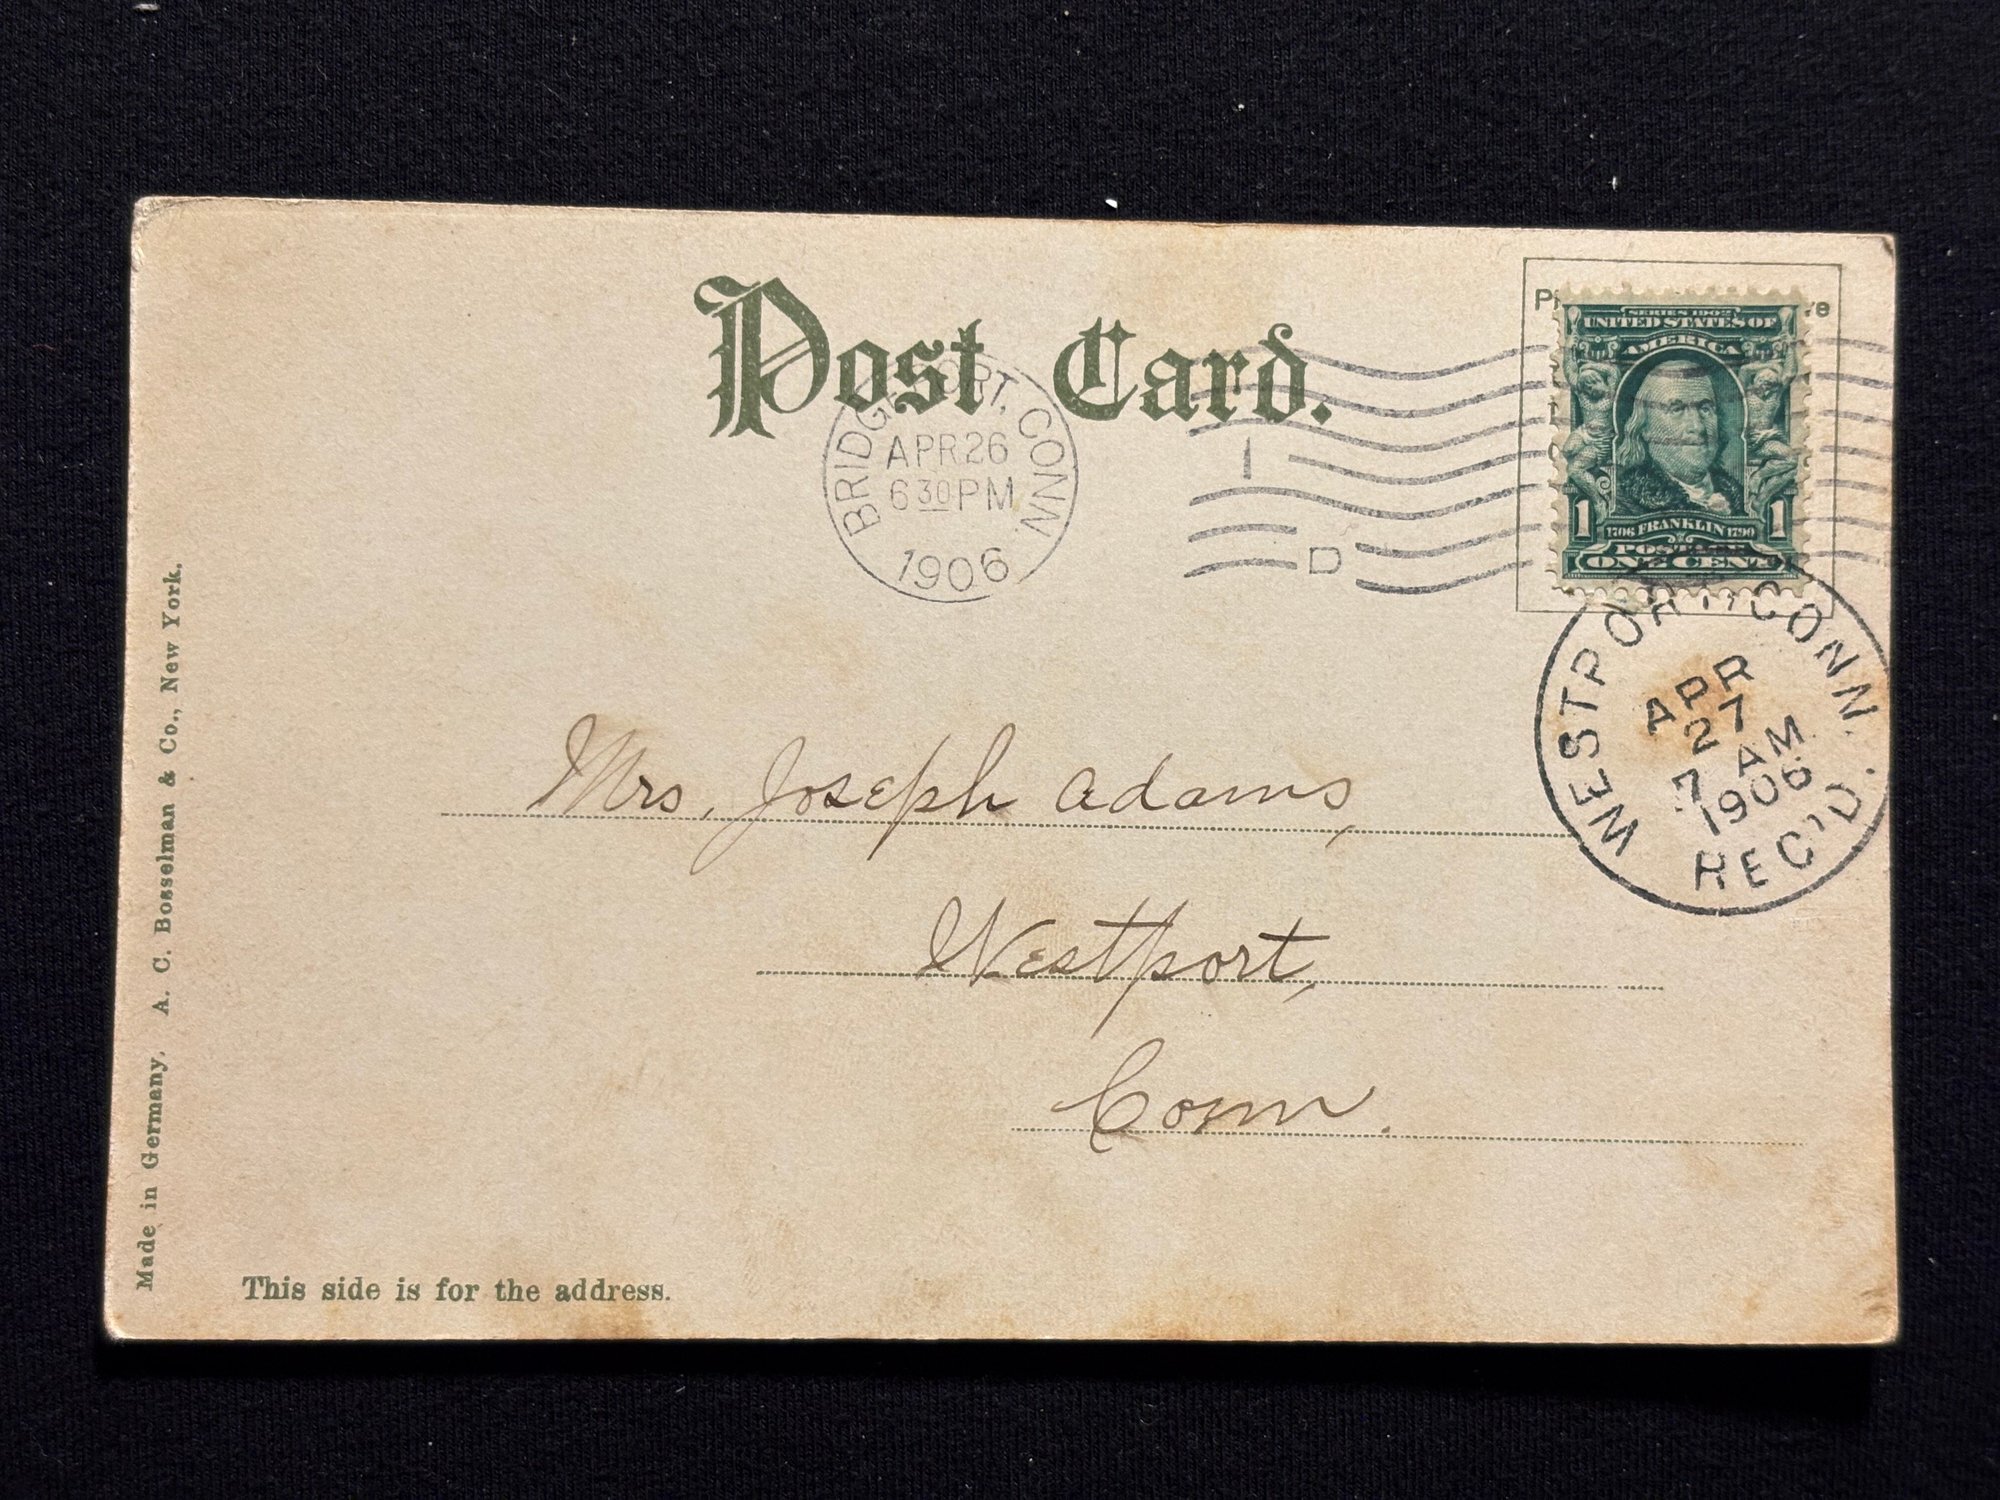 Post Card.
SERIES 1902
UNITED STATES OF
AMERICA
1 1706 FRANKLIN 1790 1
POSTAGE
ONE CENT
BRIDGEPORT, CONN.
APR 26
6 30 PM
1906
1
D
WESTPORT CONN.
APR
27
7 AM
1906
REC'D.
Mrs. Joseph Adams,
Westport,
Conn.
Made in Germany. A. C. Bosselman & Co., New York.
This side is for the address.